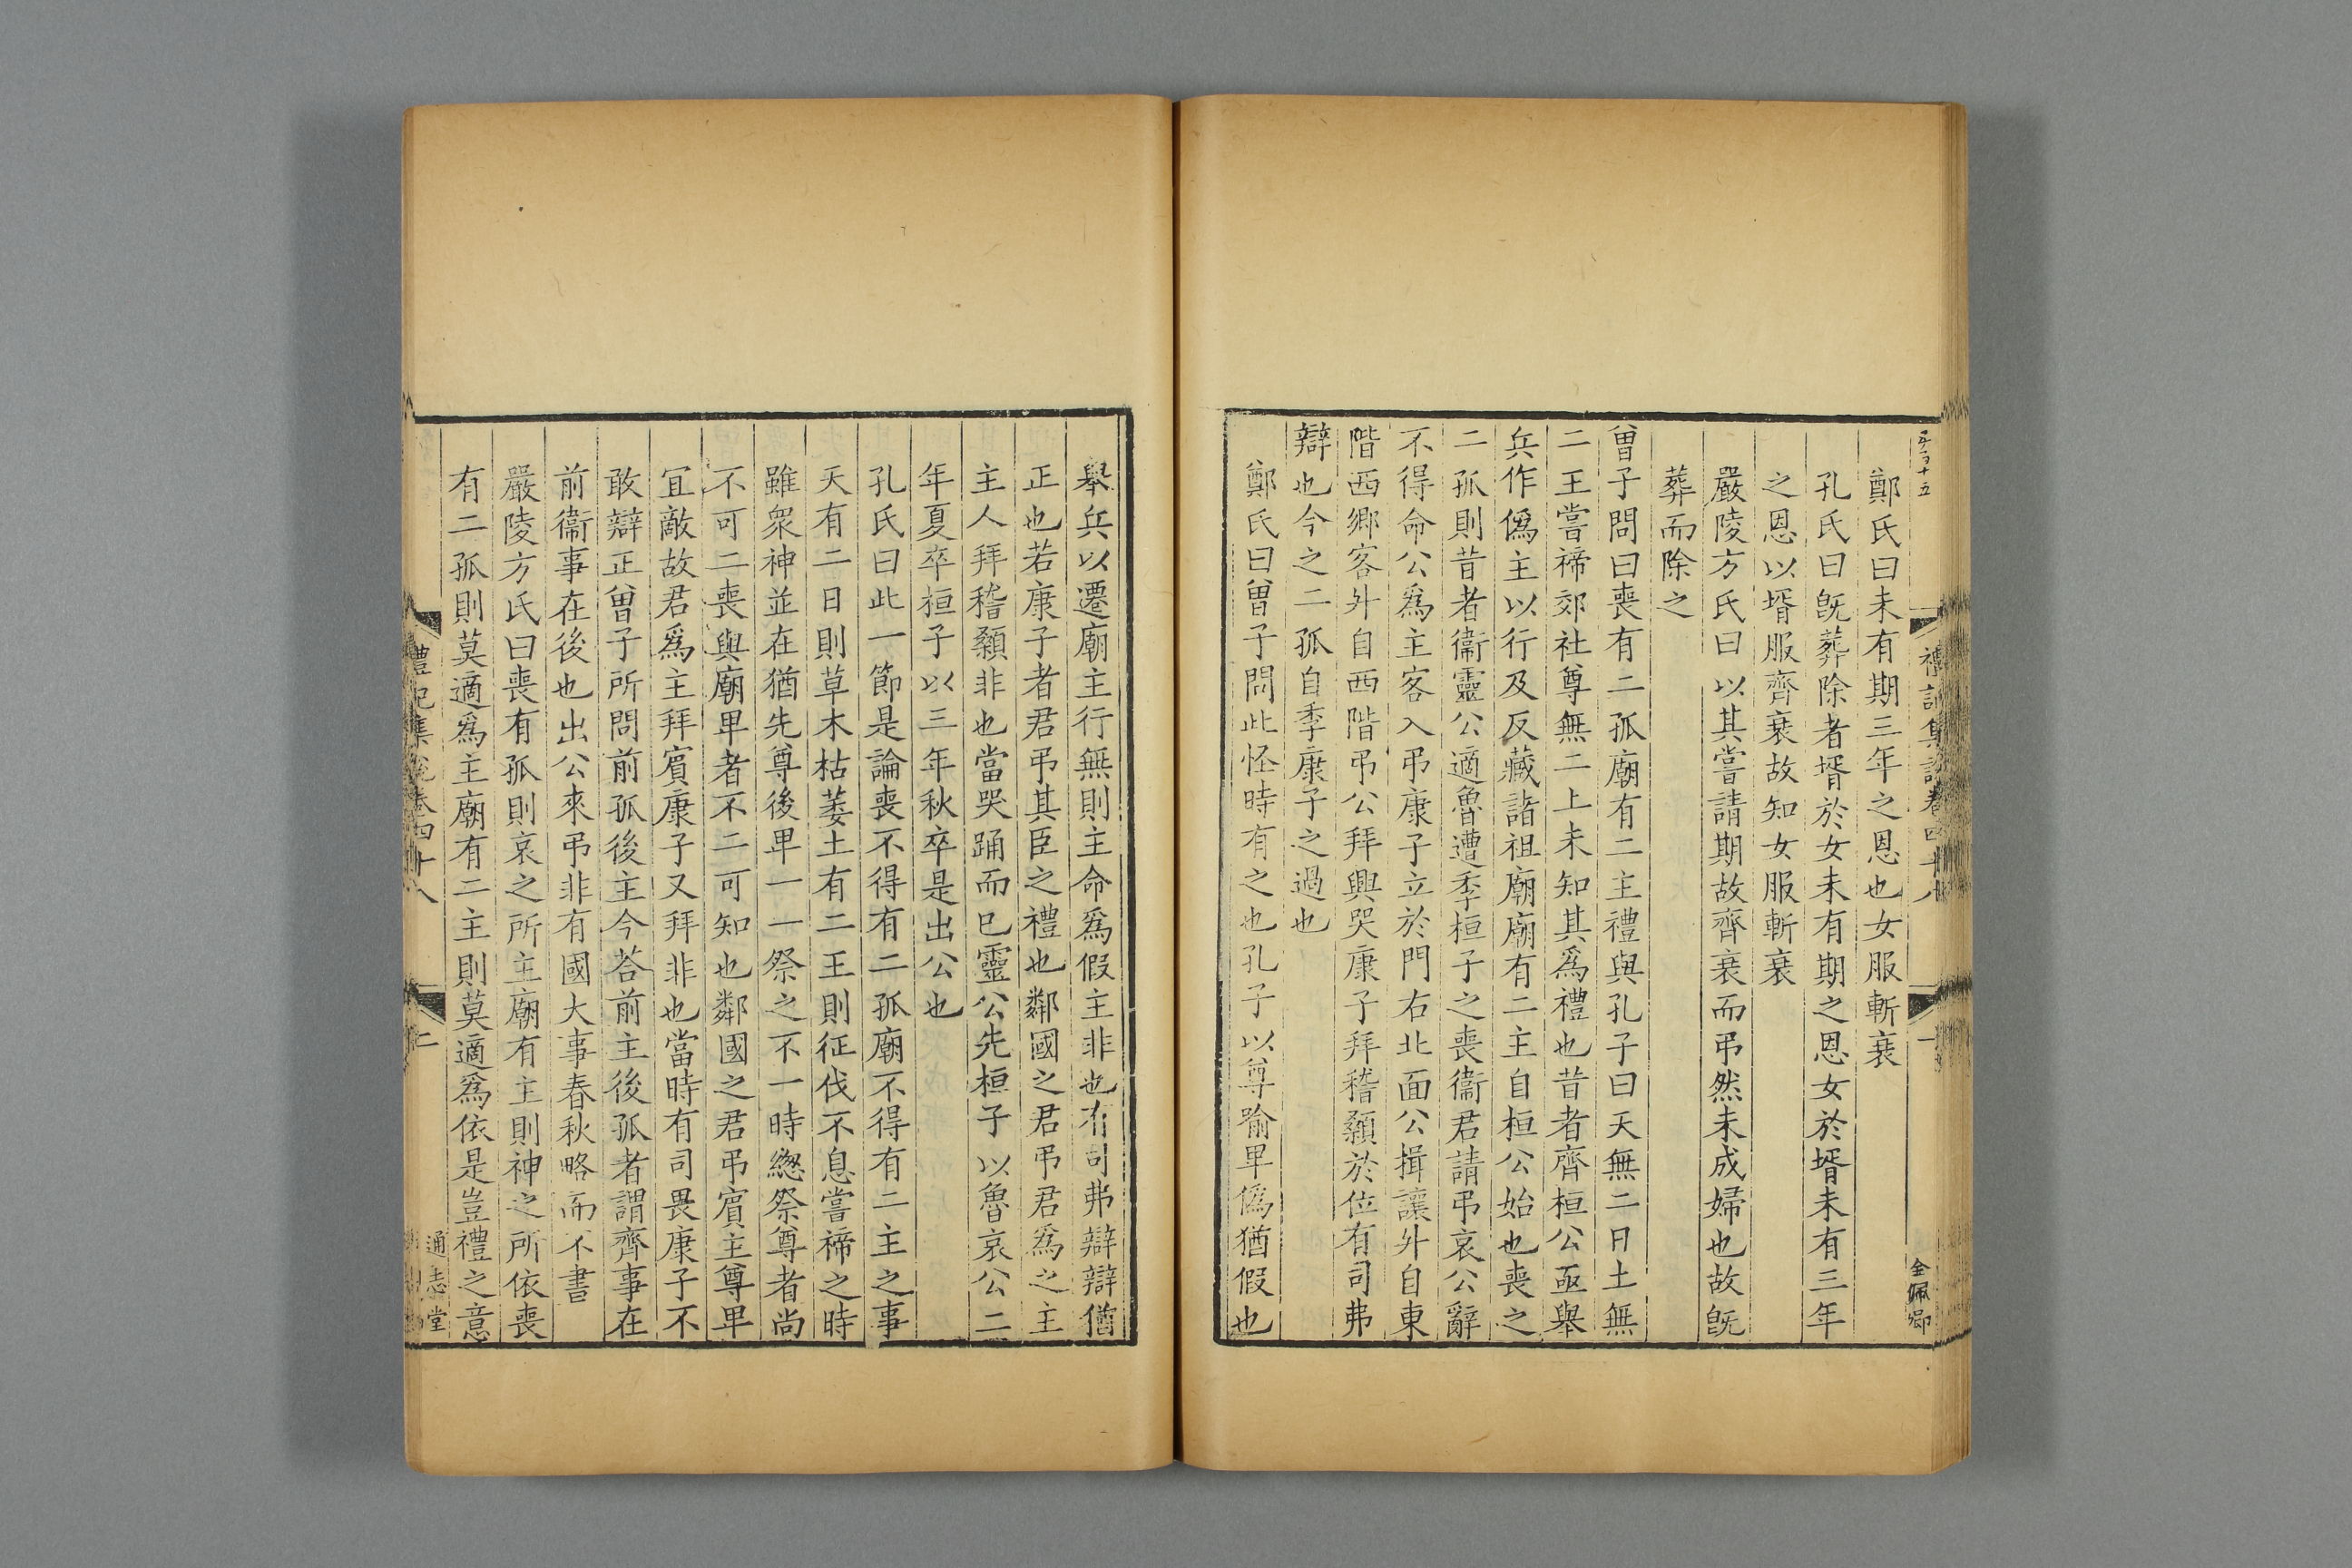 禮記集說卷四十八
一
金佩卿
鄭氏曰未有期三年之恩也女服斬衰
孔氏曰旣葬除者壻於女未有期之恩女於壻未有三年
之恩以壻服齊衰故知女服斬衰
嚴陵方氏曰以其嘗請期故齊衰而弔然未成婦也故旣
葬而除之
曾子問曰喪有二孤廟有二主禮與孔子曰天無二日土無
二王嘗禘郊社尊無二上未知其爲禮也昔者齊桓公亟舉
兵作僞主以行及反藏諸祖廟廟有二主自桓公始也喪之
二孤則昔者衞靈公適魯遭季桓子之喪衞君請弔哀公辭
不得命公爲主客入弔康子立於門右北面公揖讓升自東
階西鄉客升自西階弔公拜興哭康子拜稽顙於位有司弗
辯也今之二孤自季康子之過也
鄭氏曰曾子問此怪時有之也孔子以尊喻卑僞猶假也
舉兵以遷廟主行無則主命爲假主非也有司弗辯辯猶
正也若康子者君弔其臣之禮也鄰國之君弔君爲之主
主人拜稽顙非也當哭踊而已靈公先桓子以魯哀公二
年夏卒桓子以三年秋卒是出公也
孔氏曰此一節是論喪不得有二孤廟不得有二主之事
天有二日則草木枯萎土有二王則征伐不息嘗禘之時
雖衆神並在猶先尊後卑一一祭之不一時緫祭尊者尚
不可二喪與廟卑者不二可知也鄰國之君弔賓主尊卑
冝敵故君爲主拜賓康子又拜非也當時有司畏康子不
敢辯正曾子所問前孤後主今荅前主後孤者謂齊事在
前衞事在後也出公來弔非有國大事春秋略而不書
嚴陵方氏曰喪有孤則哀之所主廟有主則神之所依喪
有二孤則莫適爲主廟有二主則莫適爲依是豈禮之意
禮記集說卷四十八
二
通志堂